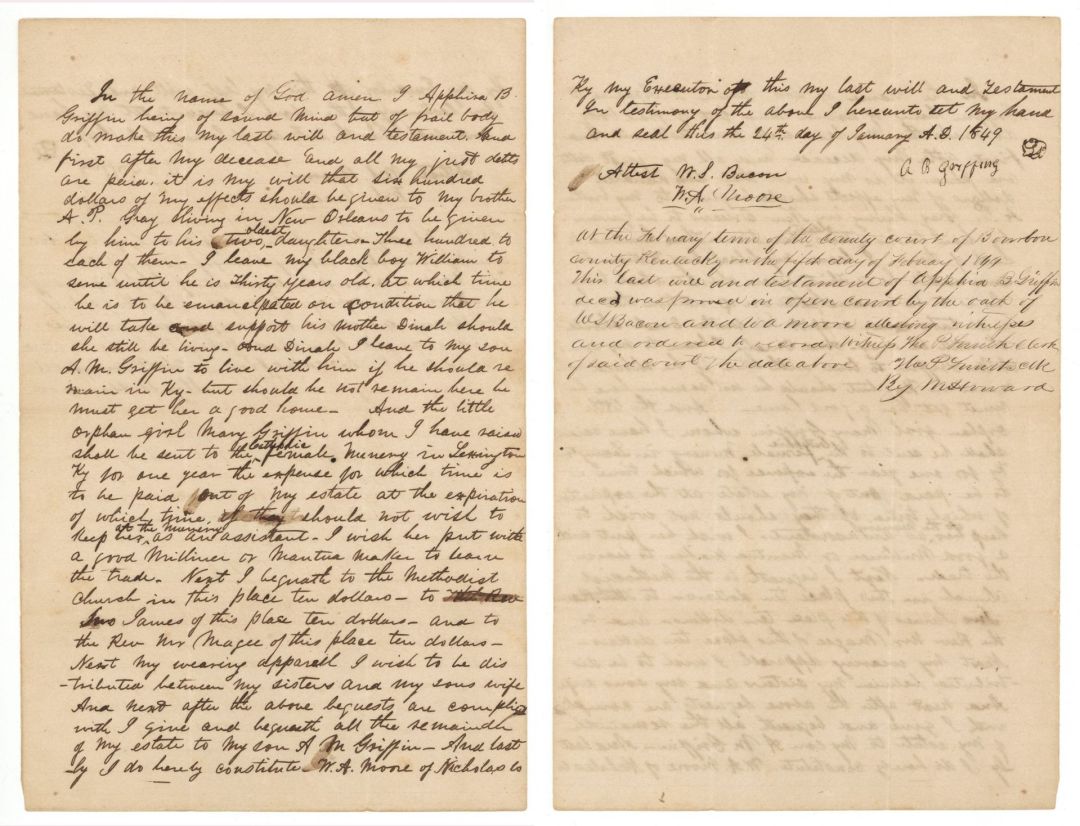 In the name of God amen I Apphira B
Griffin being of sound mind but of frail body
do make this my last will and testament. And
first after my decease and all my just debts
are paid. it is my will that six hundred
dollars of my effects should be given to my brother
A. P. Gray living in New Orleans to be given
by him to his two oldest daughters Three hundred to
each of them - I leave my black boy William to
serve until he is Thirty years old, at which time
he is to be emancipated on condition that he
will take and support his mother Dinah should
she still be living - And Dinah I leave to my son
A. M. Griffin to live with him if he should re
main in Ky - but should he not remain here he
must get her a good home - And the little
orphan girl Mary Griffin whom I have raised
shall be sent to the Catholic female Nunery in Lexington
Ky for one year the expense for which time is
to be paid out of my estate at the expiration
of which time, if they should not wish to
keep her at the Nunery as an assistant - I wish her put with
a good Milliner or Mantua maker to learn
the trade - Next I bequath to the Methodist
Church in this place ten dollars - to
Jno James of this place ten dollars - and to
the Rev Mr Magee of this place ten dollars -
Next my wearing apparell I wish to be dis
-tributed between my sisters and my sons wife
And next after the above bequests are complied
with I give and bequath all the remainder
of my estate to my son A M Griffin - And last
ly I do hereby constitute W. A. Moore of Nicholas co
Ky my Executor of this my last will and Testament
In testimony of the above I hereunto set my hand
and seal this the 24th day of January A.D. 1849
A B Griffing
Attest W. S. Bacon
W. A. Moore
At the February term of the county court of Bourbon
county Kentucky on the fifth day of February 1849
This last will and testament of Apphira B Griffin
decd was proved in open court by the oath of
W S Bacon and W A Moore attesting witnesses
and ordered to record. Witness Tho P Smith clerk
of said court the date above
Tho P Smith clk
By M Howard